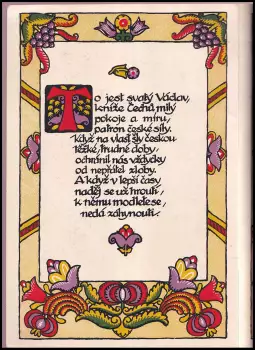 To jest svatý Václav,
kníže Čechů milý
pokoje a míru,
patron české síly.
Když na vlast šly českou
těžké, trudné doby,
ochránil nás vždycky
od nepřátel zloby.
A když v lepší časy
naděj se už hroutí,
k němu modleme se,
nedá záhynouti.